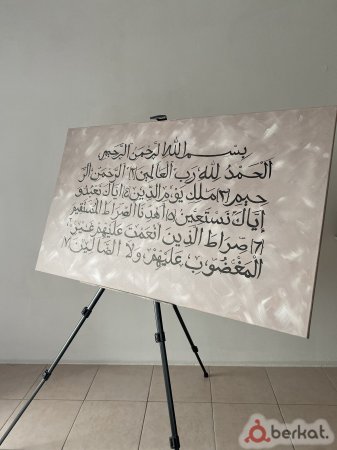 بسم الله الرحمن الرحيم
الحمد لله رب العالمين ٢ الرحمن الر
حيم ٣ ملك يوم الدين ٤ إياك نعبد و
إياك نستعين ٥ اهدنا الصراط المستقيم
٦ صراط الذين أنعمت عليهم غير
المغضوب عليهم ولا الضالين ٧
berkat.